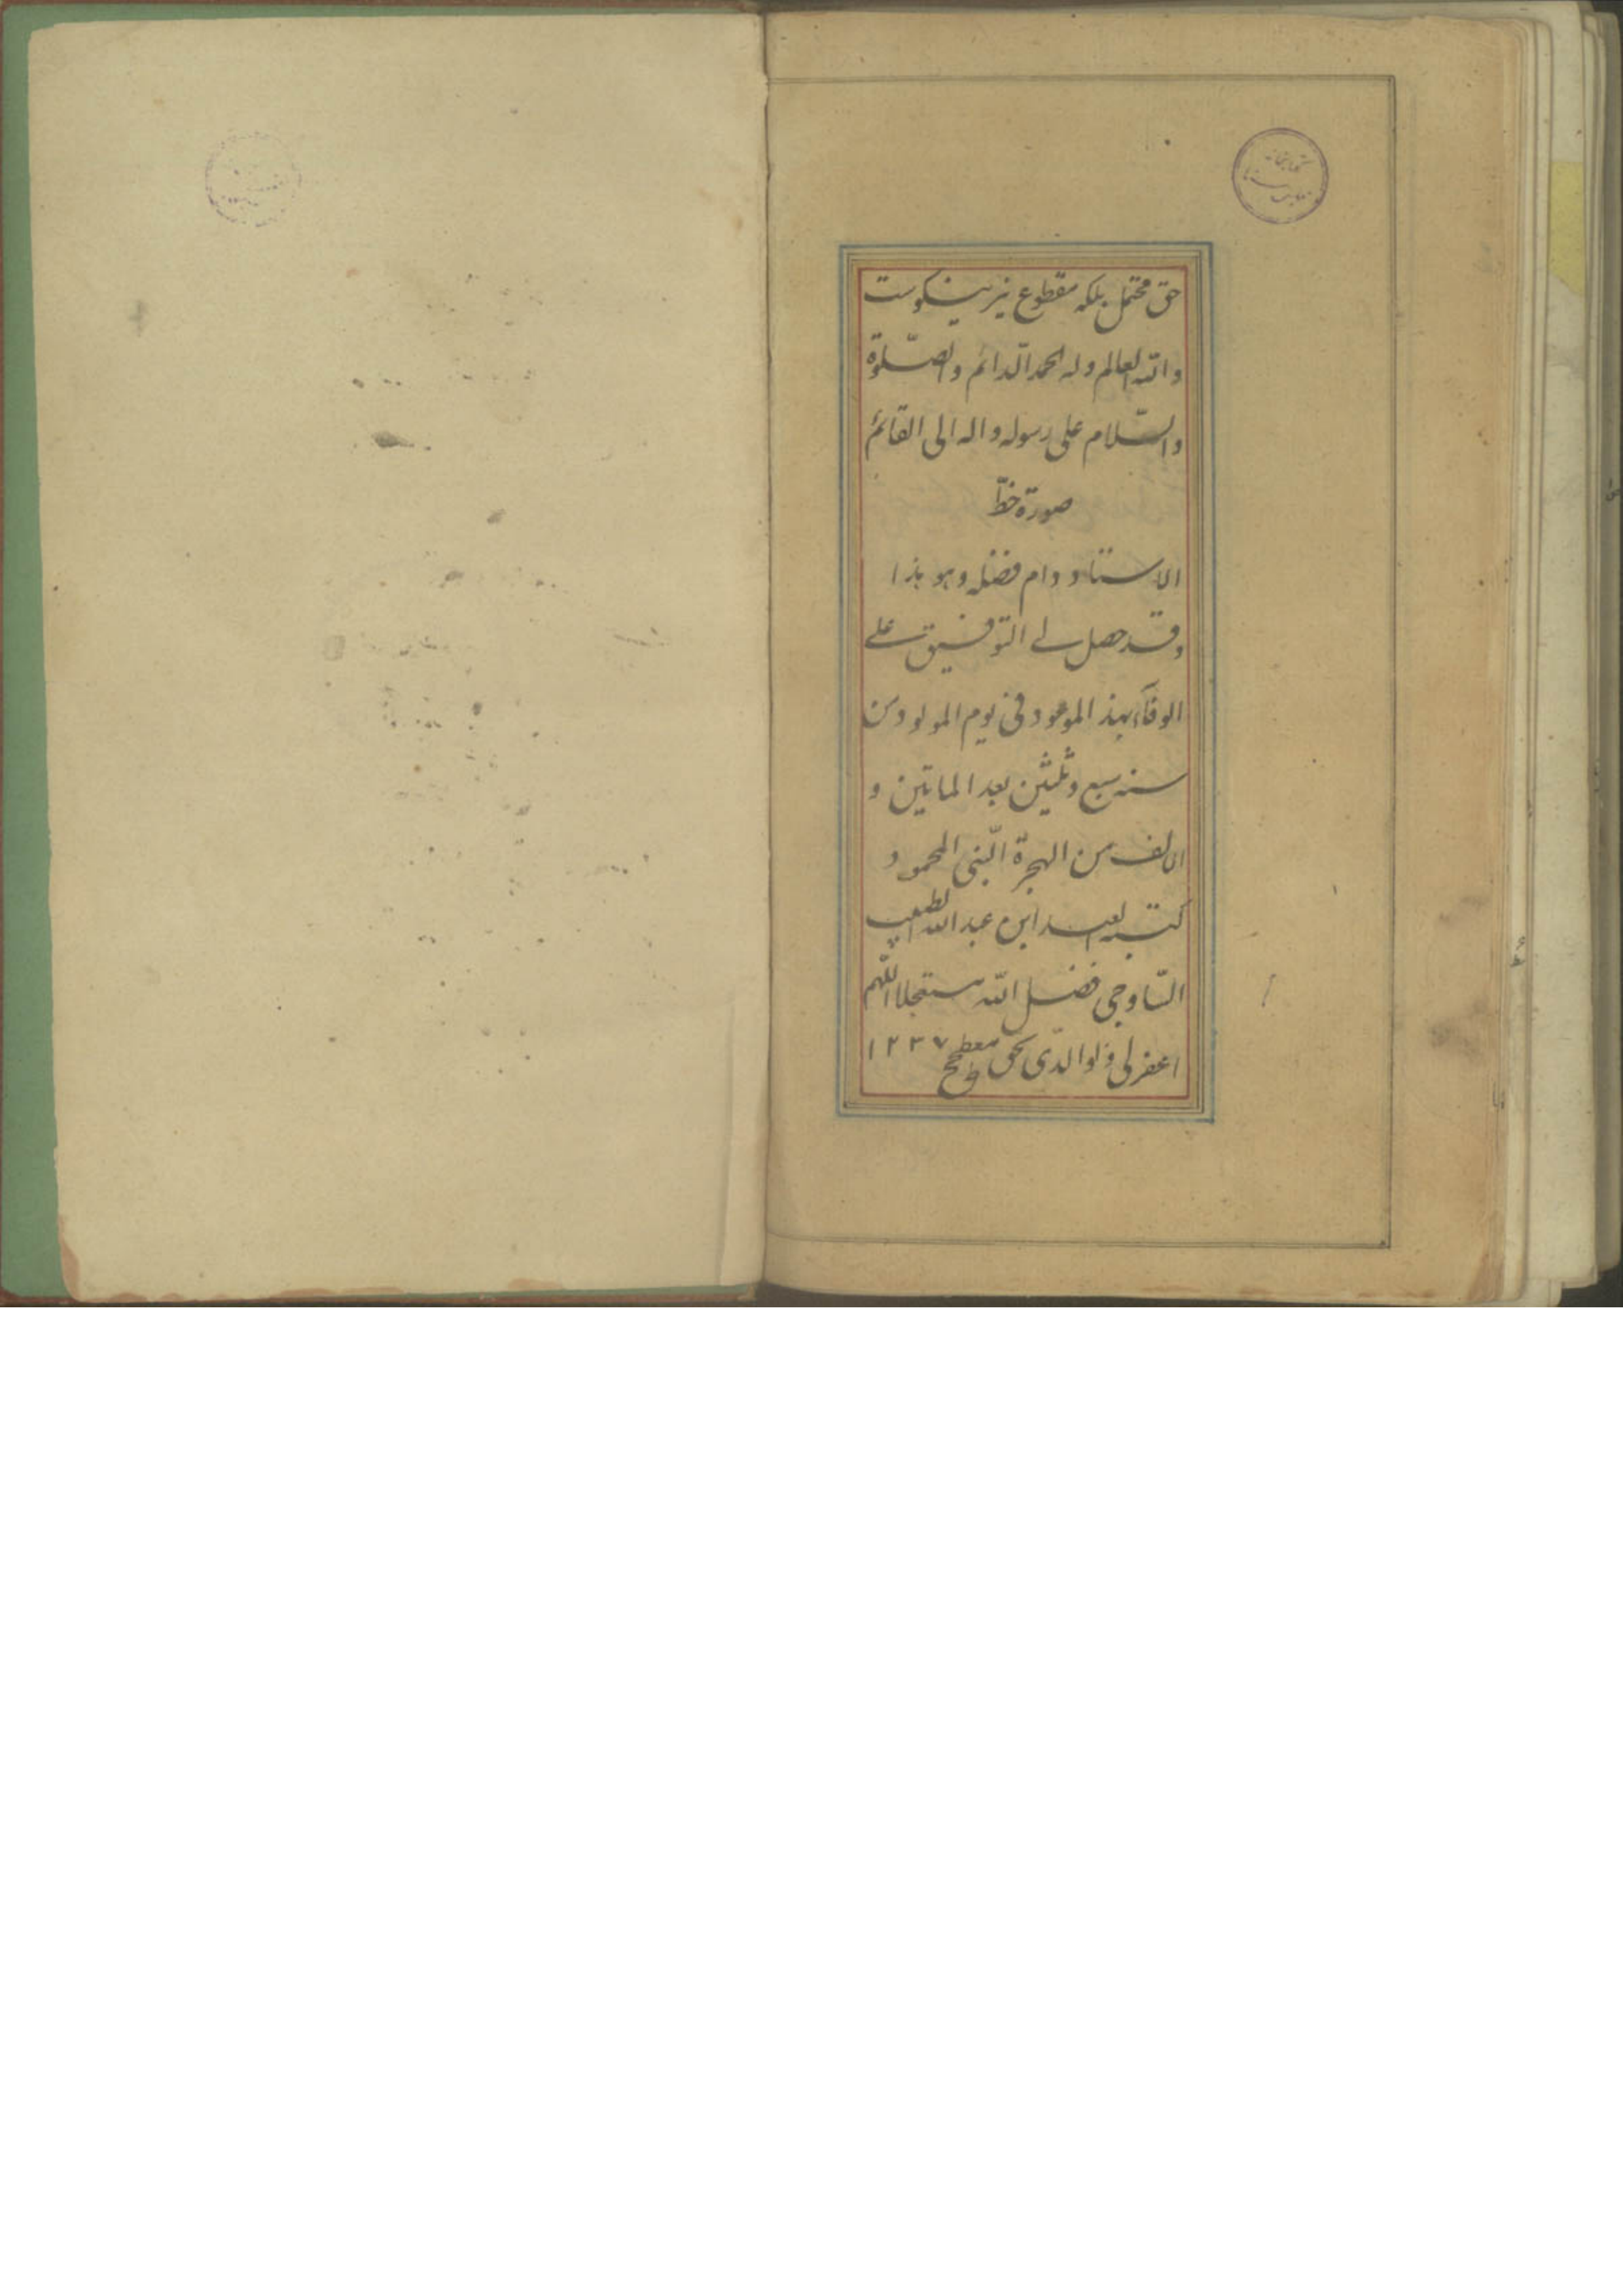 کتابخانه
حق محتمل بلکه مقطوع نیز نیکوست
والله العالم وله الحمد الدائم والصّلوة
والسّلام علی رسوله واله الی القائم
صورة خطّ
الاستاد دام فضله وهو هذا
وقد حصل لی التوفیق علی
الوفاء بهذ الموعود فی یوم المولود من
سنه سبع وثلثین بعد الماتین و
الالف من الهجرة النّبی المحمود
کتبه العبد ابن عبد الله الطبیب
السّاوجی فضل الله مستعجلا اللّهم
اغفر لی ولوالدّی بحق ۱۲۳۷